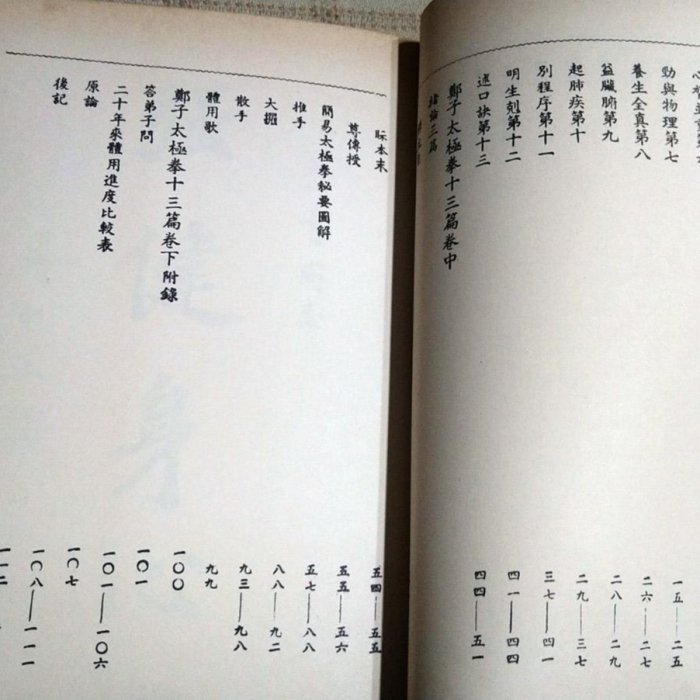 勁與物理第七 一五——二五
養生全真第八 二六——二七
益臟腑第九 二八——二九
起肺疾第十 二九——三七
別程序第十一 三七——四一
明生剋第十二 四一——四四
述口訣第十三 四四——五一
鄭子太極拳十三篇卷中
論三篇
眎本末 五四——五五
尊傳授 五五——五六
簡易太極拳秘要圖解 五七——八八
推手 八八——九二
大攦 九三——九八
散手 九九
體用歌 一〇〇
鄭子太極拳十三篇卷下附錄
答弟子問 一〇一
二十年來體用進度比較表 一〇一——一〇六
原論 一〇七
後記 一〇八——一一一
一一二